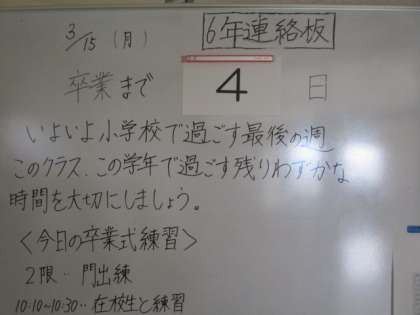 3/15（月）
6年連絡板
卒業まで 4 日
いよいよ小学校で過ごす最後の週
このクラス、この学年で過ごす残りわずかな
時間を大切にしましょう。
＜今日の卒業式練習＞
2限‥門出練
10:10～10:30‥在校生と練習